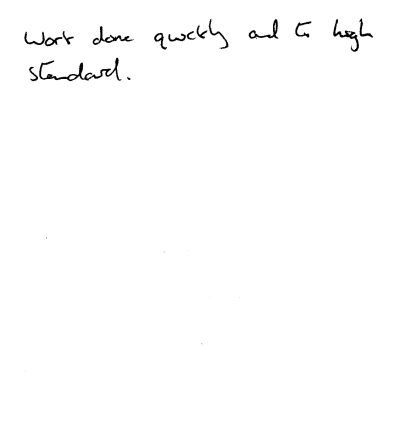 Work done quickly and to high
standard.